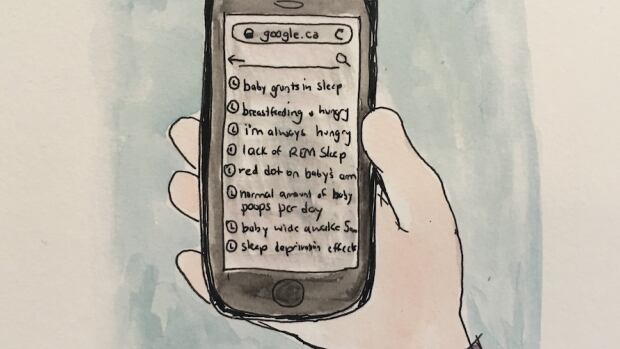 google.ca
baby grunts in sleep
breastfeeding & hungry
i'm always hungry
lack of REM Sleep
red dot on baby's arm
normal amount of baby
poops per day
baby wide awake 5am
sleep deprivation effects